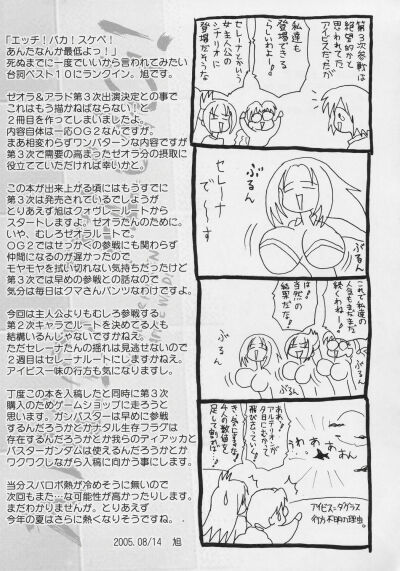 「エッチ！バカ！スケベ！
あんたなんか最低よっ！」
死ぬまでに一度でいいから言われてみたい
台詞ベスト１０にランクイン。旭です。
ゼオラ&アラド第３次出演決定との事で
これはもう描かねばならない！と
２冊目を作ってしまいましたよ。
内容自体は一応ＯＧ２なんですが。
まあ相変わらずワンパターンな内容ですが
第３次で需要の高まったゼオラ分の摂取に
役立てていただければ幸いかと。
この本が出来上がる頃にはもうすでに
第３次は発売されているでしょうが
とりあえず旭はクォヴレールートから
スタートしますよ。ゼオラたんのために。
いや、むしろゼオラルートで。
ＯＧ２ではせっかくの参戦にも関わらず
仲間になるのが遅かったので
モヤモヤを拭い切れない気持ちだったけど
第３次では早めの参戦との話なので
気分は毎日がクマさんパンツなわけですよ。
今回は主人公よりもむしろ参戦する
第２次キャラでルートを決めてる人も
結構いるんじゃないですかねえ。
ただセレーナたんの揺れは見逃せないので
２週目はセレーナルートにしますかねえ。
アイビス一味の行方も気になりますし。
丁度この本を入稿したと同時に第３次
購入のためゲームショップに走ろうと
思います。ガンバスターは早めに参戦
するんだろうかとかナタル生存フラグは
存在するんだろうかとか我らのディアッカと
バスターガンダムは使えるんだろうかとか
ワクワクしながら入稿に向かう事にします。
当分スパロボ熱が冷めそうに無いので
次回もまた…な可能性が高かったりします。
まだわかりませんが。とりあえず
今年の夏はさらに熱くなりそうですね。
2005.08/14　旭
第３次参戦は
絶望的かと
思われてた
アイビスだったが
私達も
登場できる
らしいわよー！
セレーナとかいう
女主人公の
シナリオに
登場だそうな
セレーナ
で～す
ぶるん
ぶるん
これで私達の
人気もまだまだ
続くわねー！
当然の
結果だな！
ぶるん
ぶるん
あれ！
アルテリオンが
夕日にむかって
飛びさっていく！
うわぁぁぁん
アイビス＝ダグラス
行方不明の理由。